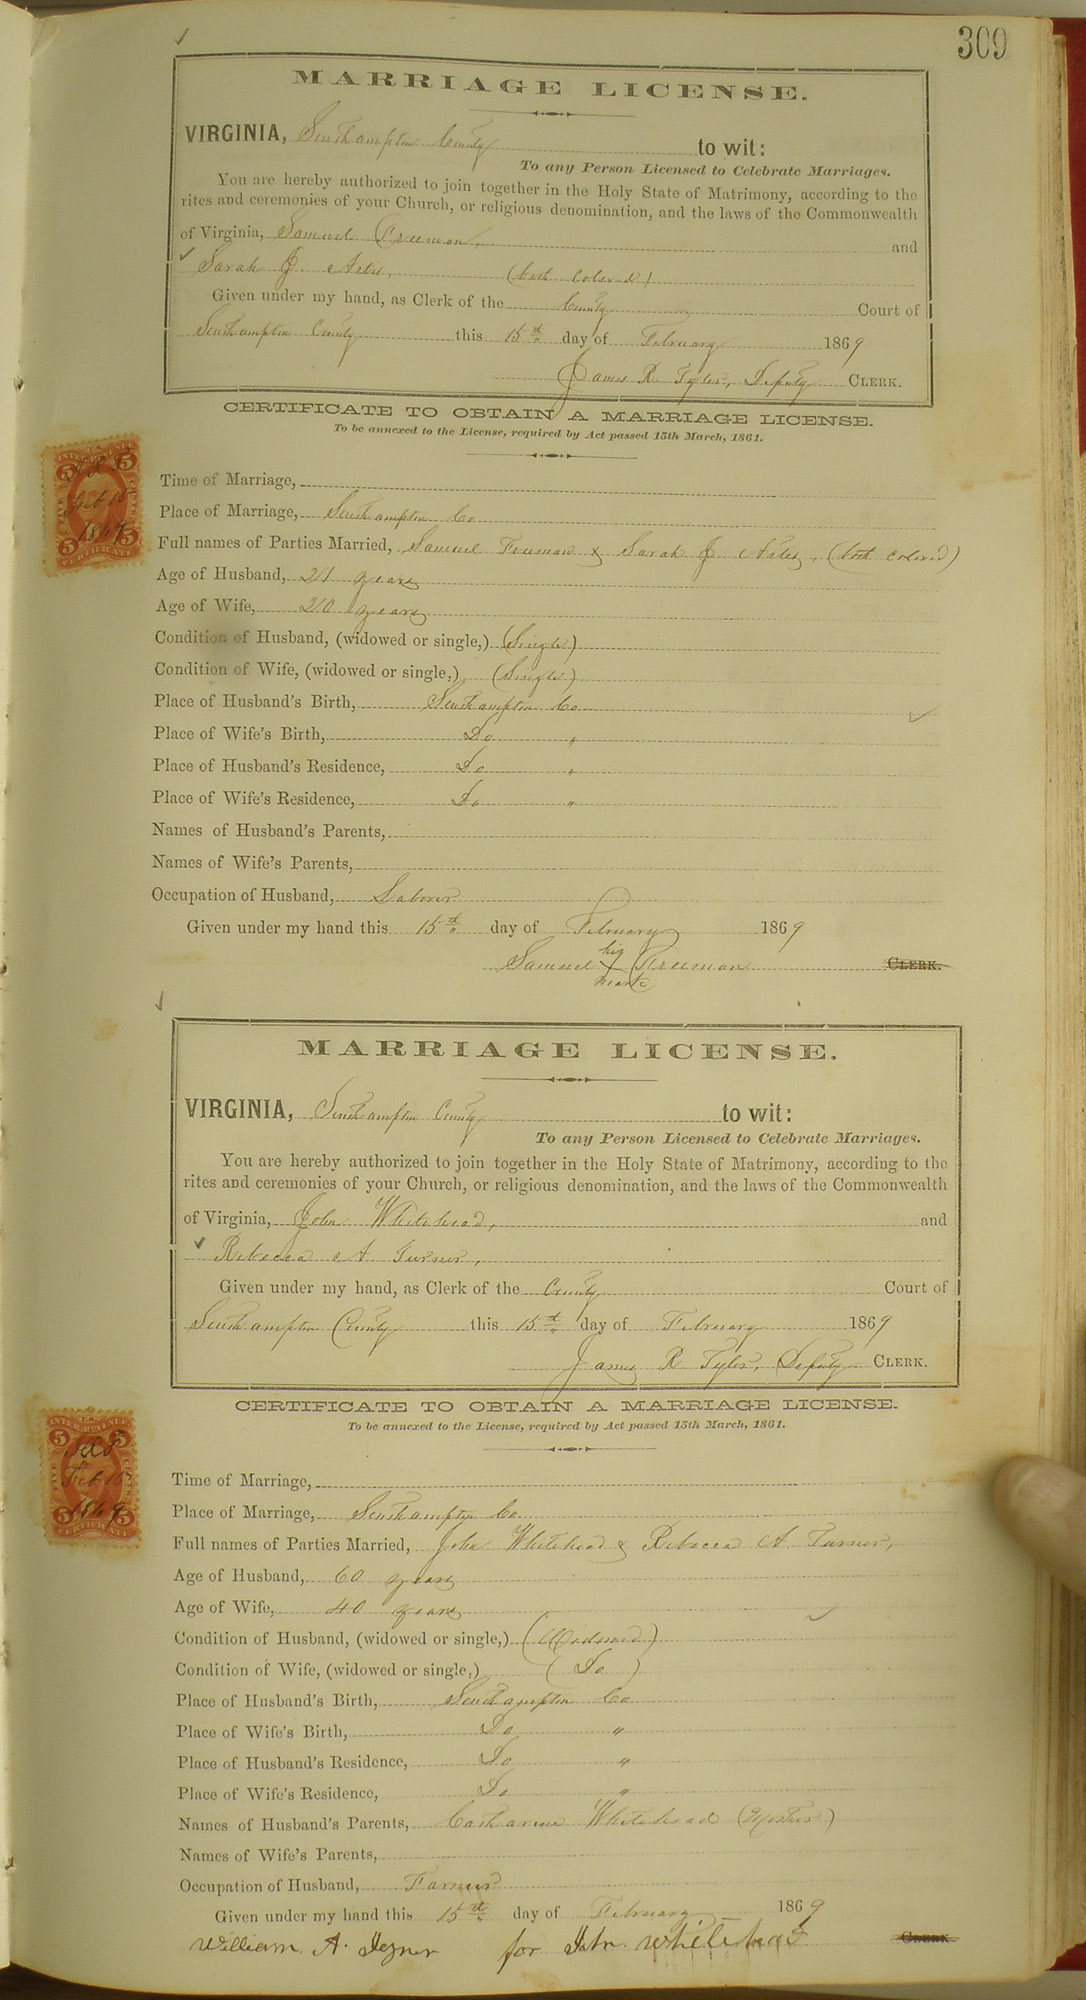 309
MARRIAGE LICENSE.
VIRGINIA, Southampton County to wit:
To any Person Licensed to Celebrate Marriages.
You are hereby authorized to join together in the Holy State of Matrimony, according to the
rites and ceremonies of your Church, or religious denomination, and the laws of the Commonwealth
of Virginia, Samuel Freeman, and
Sarah J. Artis, (both colored)
Given under my hand, as Clerk of the County Court of
Southampton County this 15th day of February 1869
James R. Tyler, Deputy CLERK.
CERTIFICATE TO OBTAIN A MARRIAGE LICENSE.
To be annexed to the License, required by Act passed 15th March, 1861.
Time of Marriage,
Place of Marriage, Southampton Co
Full names of Parties Married, Samuel Freeman & Sarah J Artis, (both colored)
Age of Husband, 21 years
Age of Wife, 20 years
Condition of Husband, (widowed or single,) (Single)
Condition of Wife, (widowed or single,) (Single)
Place of Husband's Birth, Southampton Co
Place of Wife's Birth, Do "
Place of Husband's Residence, Do "
Place of Wife's Residence, Do "
Names of Husband's Parents,
Names of Wife's Parents,
Occupation of Husband, Laborer
Given under my hand this 15th day of February 1869
his
Samuel X Freeman CLERK.
mark
MARRIAGE LICENSE.
VIRGINIA, Southampton County to wit:
To any Person Licensed to Celebrate Marriages.
You are hereby authorized to join together in the Holy State of Matrimony, according to the
rites and ceremonies of your Church, or religious denomination, and the laws of the Commonwealth
of Virginia, John Whitehead, and
Rebecca A Turner,
Given under my hand, as Clerk of the County Court of
Southampton County this 15th day of February 1869
James R Tyler, Deputy CLERK.
CERTIFICATE TO OBTAIN A MARRIAGE LICENSE.
To be annexed to the License, required by Act passed 15th March, 1861.
Time of Marriage,
Place of Marriage, Southampton Co
Full names of Parties Married, John Whitehead & Rebecca A. Turner,
Age of Husband, 60 years
Age of Wife, 40 years
Condition of Husband, (widowed or single,) (Widowed)
Condition of Wife, (widowed or single,) (Do)
Place of Husband's Birth, Southampton Co
Place of Wife's Birth, Do "
Place of Husband's Residence, Do "
Place of Wife's Residence, Do "
Names of Husband's Parents, Catharine Whitehead
Names of Wife's Parents,
Occupation of Husband, Farmer
Given under my hand this 15th day of February 1869
William A. for Whitehead CLERK
INTER. REVENUE
5 5
FIVE CENTS
Feb 15
1869
5 5
CERTIFICATE
INTER. REVENUE
5 5
FIVE CENTS
Feb 15
1869
5 5
CERTIFICATE